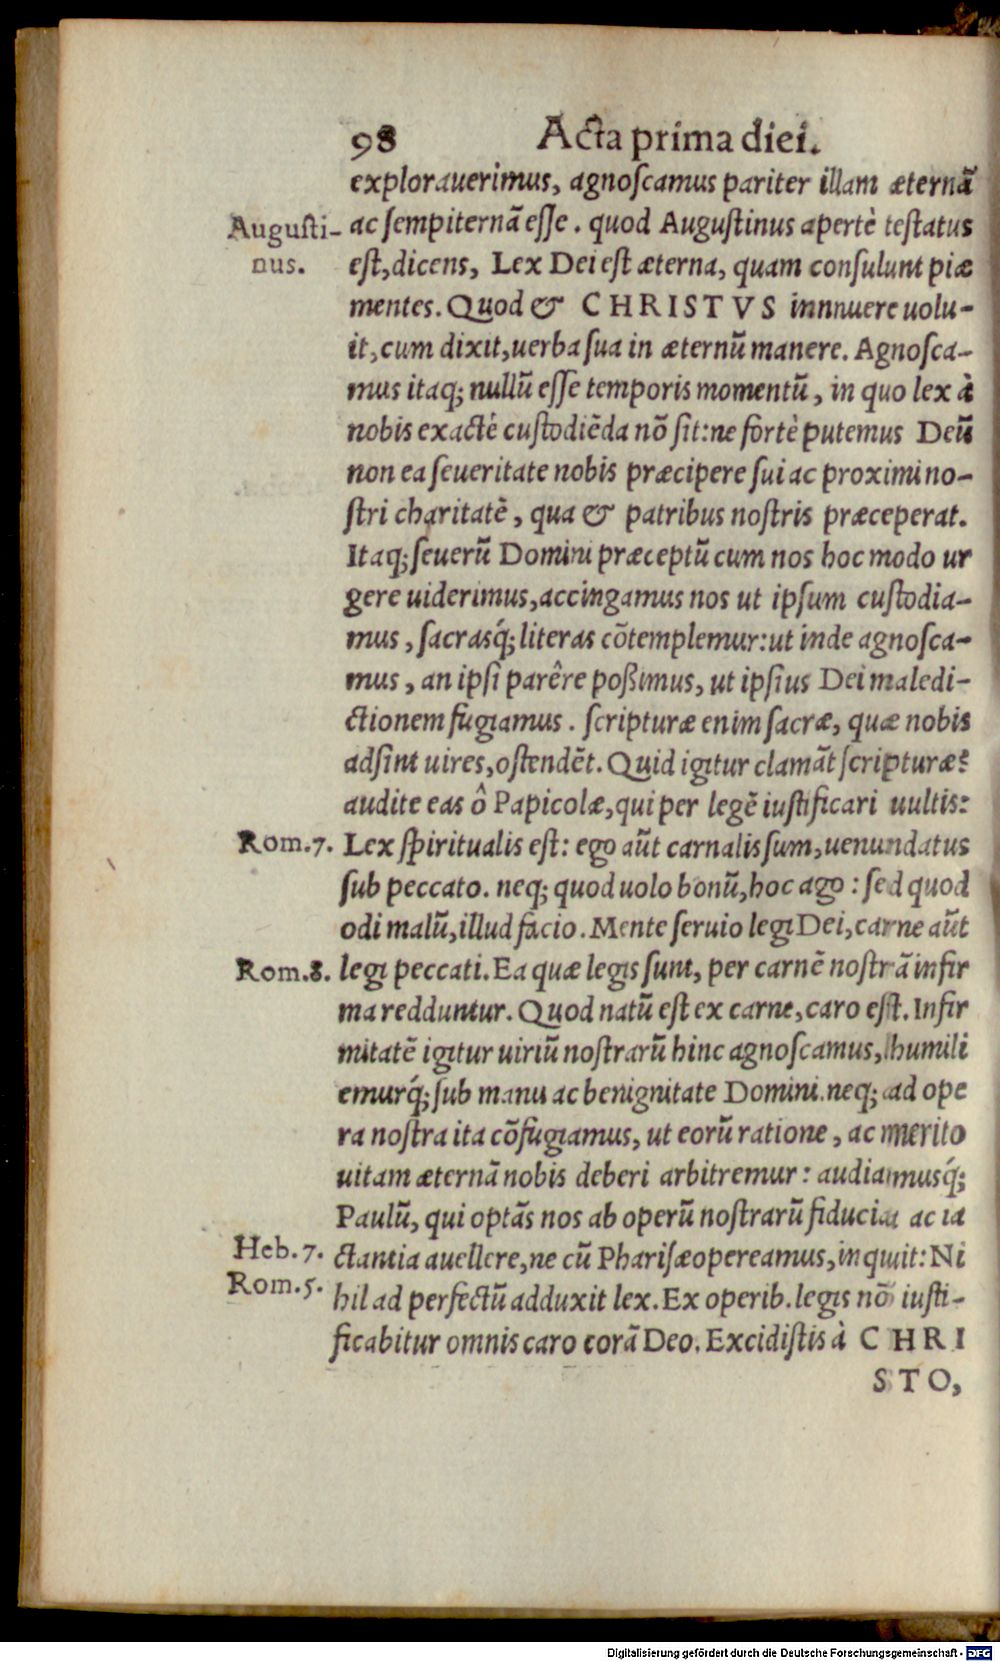 98 Acta prima diei.
explorauerimus, agnoscamus pariter illam æternã
Augusti-
nus.
ac sempiternã esse. quod Augustinus apertè testatus
est, dicens, Lex Dei est æterna, quam consulunt piæ
mentes. Quod & CHRISTVS innnuere uolu-
it, cum dixit, uerba sua in æternũ manere. Agnosca-
mus itaq; nullũ esse temporis momentũ, in quo lex à
nobis exactè custodiẽda nõ sit: ne fortè putemus Deũ
non ea seueritate nobis præcipere sui ac proximi no-
stri charitatẽ, qua & patribus nostris præceperat.
Itaq; seuerũ Domini præceptũ cum nos hoc modo ur
gere uiderimus, accingamus nos ut ipsum custodia-
mus, sacrasq́; literas cõtemplemur: ut inde agnosca-
mus, an ipsi parêre poßimus, ut ipsius Dei maledi-
ctionem fugiamus. scripturæ enim sacræ, quæ nobis
adsint uires, ostendẽt. Quid igitur clamãt scripturæ?
audite eas ô Papicolæ, qui per legẽ iustificari uultis:
Rom.7. Lex spiritualis est: ego aũt carnalis sum, uenundatus
sub peccato. neq; quod uolo bonũ, hoc ago: sed quod
odi malũ, illud facio. Mente seruio legi Dei, carne aũt
Rom.8. legi peccati. Ea quæ legis sunt, per carnẽ nostrã infir
ma redduntur. Quod natũ est ex carne, caro est. Infir
mitatẽ igitur uiriũ nostrarũ hinc agnoscamus, humili
emurq́; sub manu ac benignitate Domini. neq; ad ope
ra nostra ita cõfugiamus, ut eorũ ratione, ac merito
uitam æternã nobis deberi arbitremur: audiamusq́;
Paulũ, qui optãs nos ab operũ nostrarũ fiducia ac ia
Heb.7. ctantia auellere, ne cũ Pharisæo pereamus, inquit: Ni
Rom.5. hil ad perfectũ adduxit lex. Ex operib. legis nõ iusti-
ficabitur omnis caro corã Deo. Excidistis à CHRI
STO,
Digitalisierung gefördert durch die Deutsche Forschungsgemeinschaft - DFG